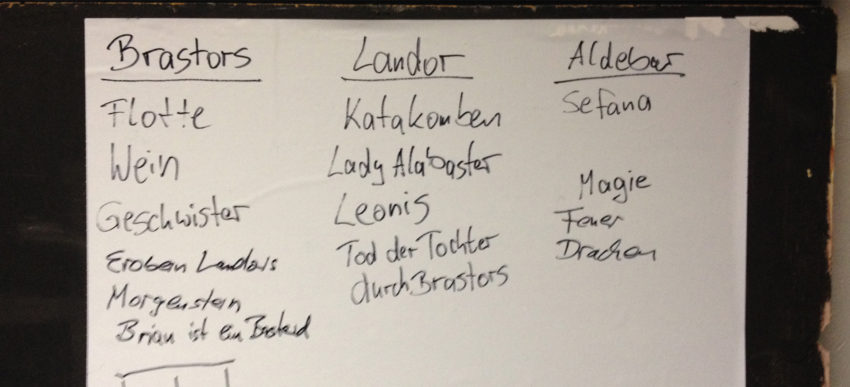 Brastors
Flotte
Wein
Geschwister
Eroben Landors
Morgenstern
Brian ist ein Bastard
Landor
Katakomben
Lady Alabaster
Leonis
Tod der Tochter
durch Brastors
Aldebar
Sefana
Magie
Feuer
Drachen